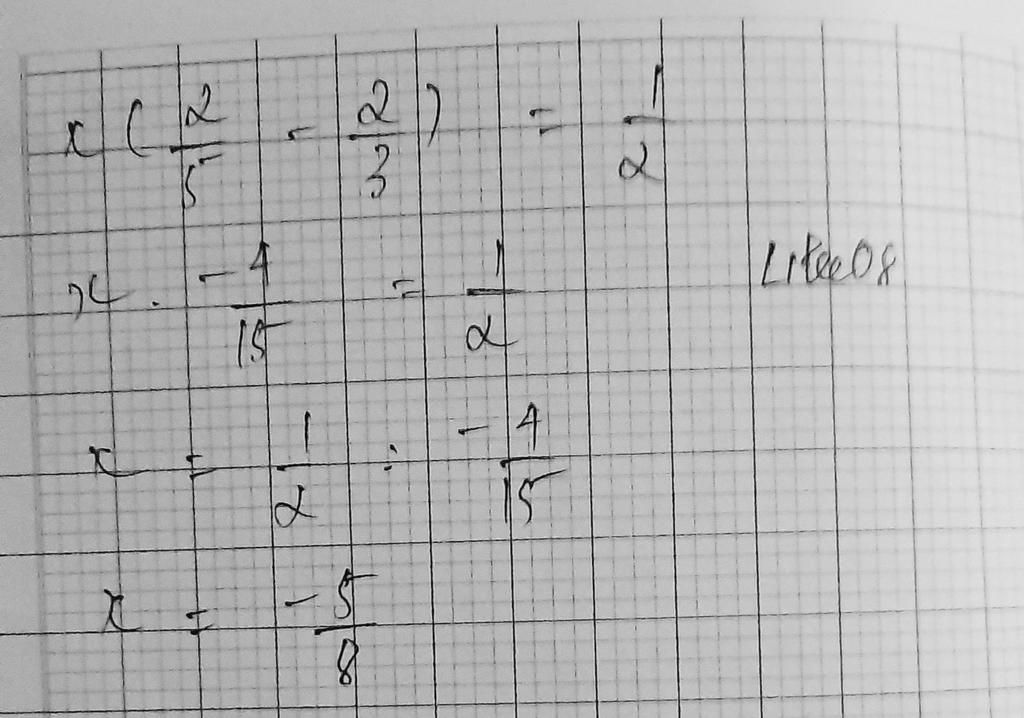 x ( 2/5 - 2/3 ) = 1/2
x . -4/15 = 1/2
LiteeO8
x = 1/2 : -4/15
x = -5/8